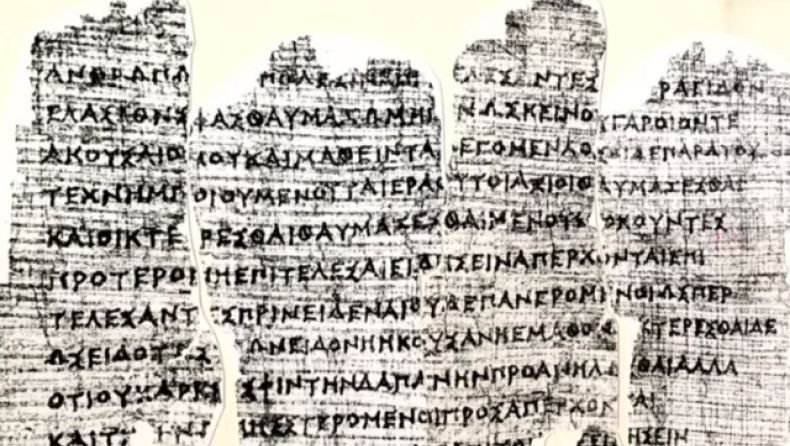 ΑΝΘΡΩΠΩ ΠΟΛΕΣΙΝΕΠΙ ΕΛΕΣΑΝΤΕΣ ΡΑΕΙΔΟΝ
ΕΛΑΣΣΟΝΣ ΦΑΣΘΑΥΜΑΖΩΜΗΓ ΝΩΣΚΕΙΝΟ ΥΓΑΡΟΙΟΝΤΕ
ΑΚΟΥΣΑΙΟ ΜΟΥΚΑΙΜΑΘΕΙΝΤΑ ΛΕΓΟΜΕΝΑΟ ΣΟΙΔΕΠΑΡΑΤΟΥ
ΤΕΧΝΗΜΠ ΟΙΟΥΜΕΝΟΥΤΑΙΕΡΑΟ ΥΤΟΙΑΞΙΟΙΘ ΑΥΜΑΖΕΣΘΑΙ
ΚΑΙΟΙΚΤΕ ΡΕΣΘΑΙΘΑΥΜΑΖΕΣ ΘΑΙΜΕΝΟΤΙΔ ΟΚΟΥΝΤΕΣ
ΠΡΟΤΕΡΟΝ ΗΕΠΙΤΕΛΕΣΑΙΕΙΔ ΗΣΕΙΝΑΠΕΡΧΟ ΝΤΑΙΕΠΙ
ΤΕΛΕΣΑΝΤ ΕΣΠΡΙΝΕΙΔΕΝΑΙΟ ΥΔΕΠΑΝΕΡΟΜΕ ΝΟΙΩΣΠΕΡ
ΩΣΕΙΔΟΤΕΣ ΩΝΕΙΔΟΝΗΗΚΟ ΥΣΑΝΗΕΜΑΘΟ ΚΤΕΡΕΣΘΑΙΔΕ
ΟΤΙΟΥΚΑΡΚΕ ΣΦΙΝΤΗΝΔΑΠΑ ΝΗΝΠΡΟΑΝΗΛΩ ΣΘΑΙΑΛΛΑ
ΚΑΙΤΗ ΗΣΣΤΕΡΟΜΕΝΟΙ ΠΡΟΣΑΠΕΡΧΟΝ ΑΙ
ΗΣΕΙΝ